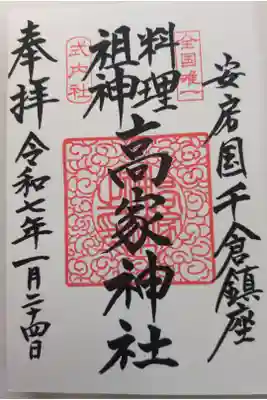 安房国千倉鎮座
全国唯一
料理
祖神
式内社
高家神社
奉拝
令和七年一月二十四日